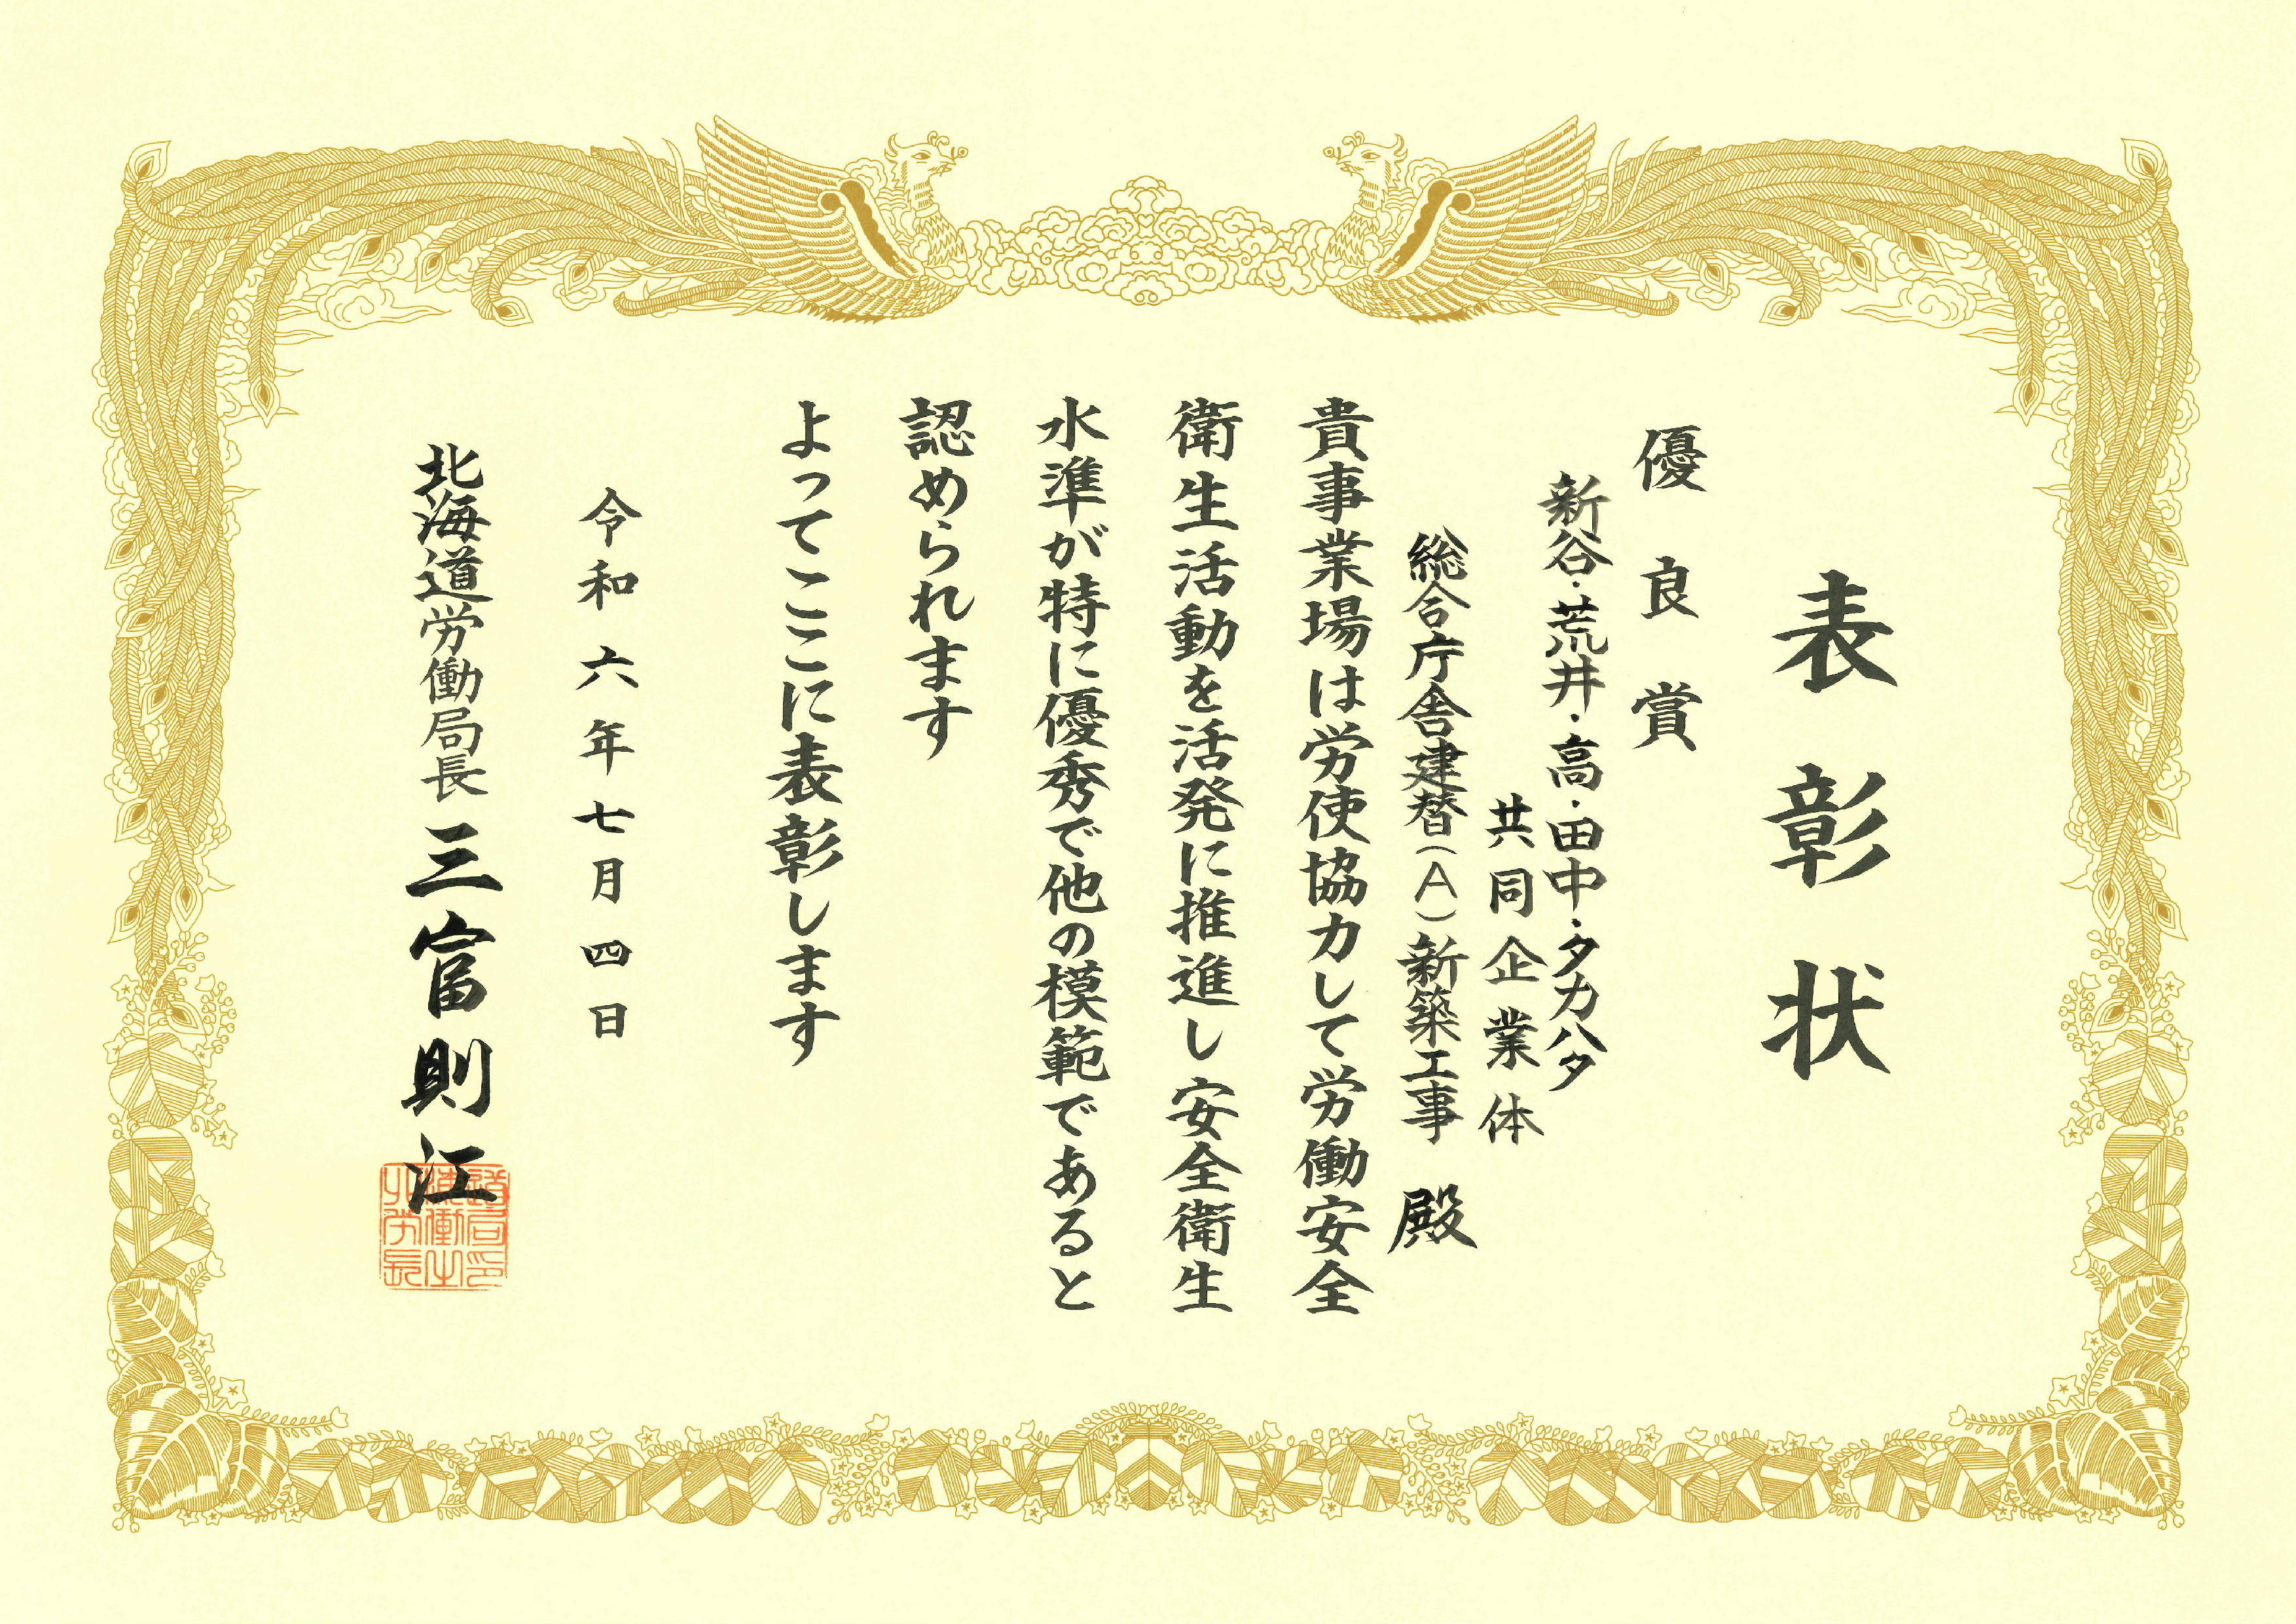 表彰状
優良賞
新谷・荒井・高・田中・タカハタ
共同企業体
総合庁舎建替(A)新築工事 殿
貴事業場は労使協力して労働安全
衛生活動を活発に推進し安全衛生
水準が特に優秀で他の模範であると
認められます
よってここに表彰します
令和六年七月四日
北海道労働局長 三富則江